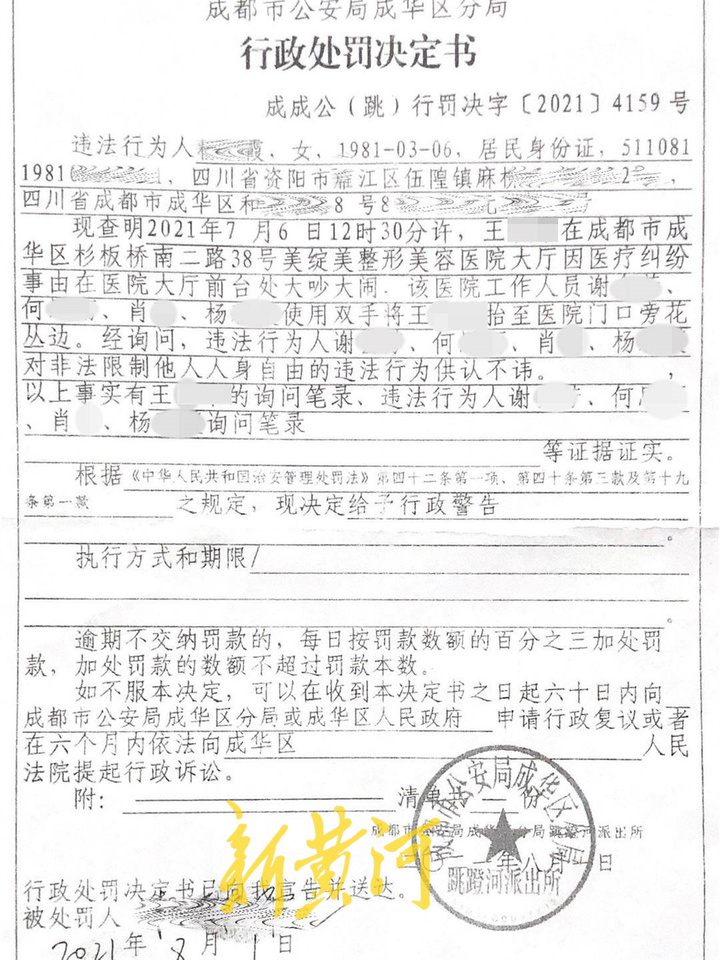 成都市公安局成华区分局
行政处罚决定书
成成公（跳）行罚决字〔2021〕4159 号
违法行为人 霞，女，1981-03-06，居民身份证，511081
1981 ，四川省资阳市雁江区伍隍镇麻 2 ，
四川省成都市成华区和 8 号8 元
现查明2021年7 月6 日12时30分许，王 在成都市成
华区杉板桥南二路38号美绽美整形美容医院大厅因医疗纠纷
事由在医院大厅前台处大吵大闹．该医院工作人员谢 、
何 、肖 、杨 使用双手将王 抬至医院门口旁花
丛边。经询问，违法行为人谢 、何 、肖 、杨
对非法限制他人人身自由的违法行为供认不讳。 ，
以上事实有王 的询问笔录、违法行为人谢 、何
、肖 、杨 询问笔录
等证据证实。
根据《中华人民共和国治安管理处罚法》第四十二条第一项、第四十条第三款及第十九
条第一款 之规定，现决定给予行政警告
。
执行方式和期限/
。
逾期不交纳罚款的，每日按罚款数额的百分之三加处罚
款，加处罚款的数额不超过罚款本数。
如不服本决定，可以在收到本决定书之日起六十日内向
成都市公安局成华区分局或成华区人民政府 申请行政复议或者
在六个月内依法向成华区 人民
法院提起行政诉讼。
附： 清单共 份
成都市公安局成华区分局跳蹬河派出所
年八月 日
公安局成华区 局
跳蹬河派出所
新黄河
行政处罚决定书已向我宣告并送达。
被处罚人
2021 年 8 月 1 日